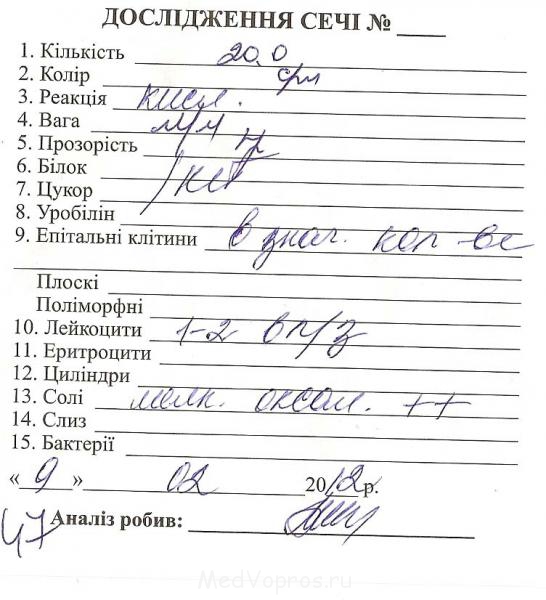 ДОСЛІДЖЕННЯ СЕЧІ № ___
1. Кількість 20,0
2. Колір
3. Реакція кисл.
4. Вага м/м
5. Прозорість
6. Білок
7. Цукор нет
8. Уробілін
9. Епітальні клітини в знач. кол-ве
Плоскі
Поліморфні
10. Лейкоцити 1-2 в п/з
11. Еритроцити
12. Циліндри
13. Солі мелк. оксал. ++
14. Слиз
15. Бактерії
« 9 » 02 2012 р.
47 Аналіз робив:
MedVopros.ru